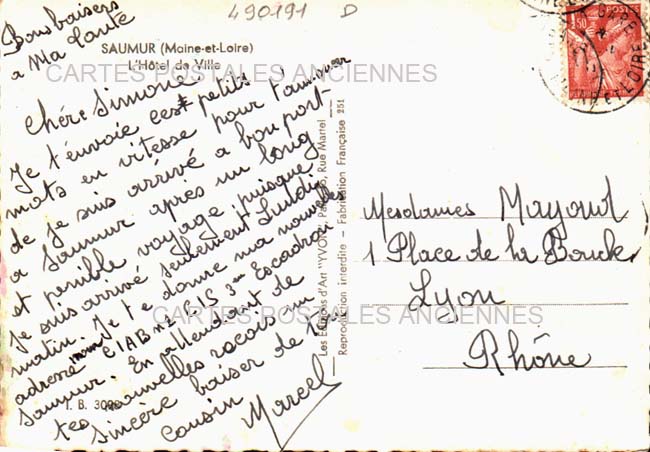 490191 D
Bons baisers
a Ma Tante
SAUMUR (Maine-et-Loire)
L'Hôtel de Ville
CARTES POSTALES ANCIENNES
Chère Simone
Je t'envoie ces petits
mots en vitesse pour t'annoncer
de je suis arrivé a bon port
a Saumur après un long
et penible voyage puisque
je suis arrivé seulement Lundi
matin. Je te donne ma nouvelle
adresse EIABn2 BIS 3em Escadron
Saumur. En attendant de
tes nouvelles reçois un
sincère baiser de ton
cousin Marcel
I. B. 3099
Les Editions d'Art "YVON", Paris, Rue Martel
Reproduction interdite - Fabrication Française 251
POSTES
1,50
GARE
ET LOIRE
Mesdames Mayoud
1 Place de la Boucle
Lyon
CARTES POSTALES ANCIENNES
Rhône